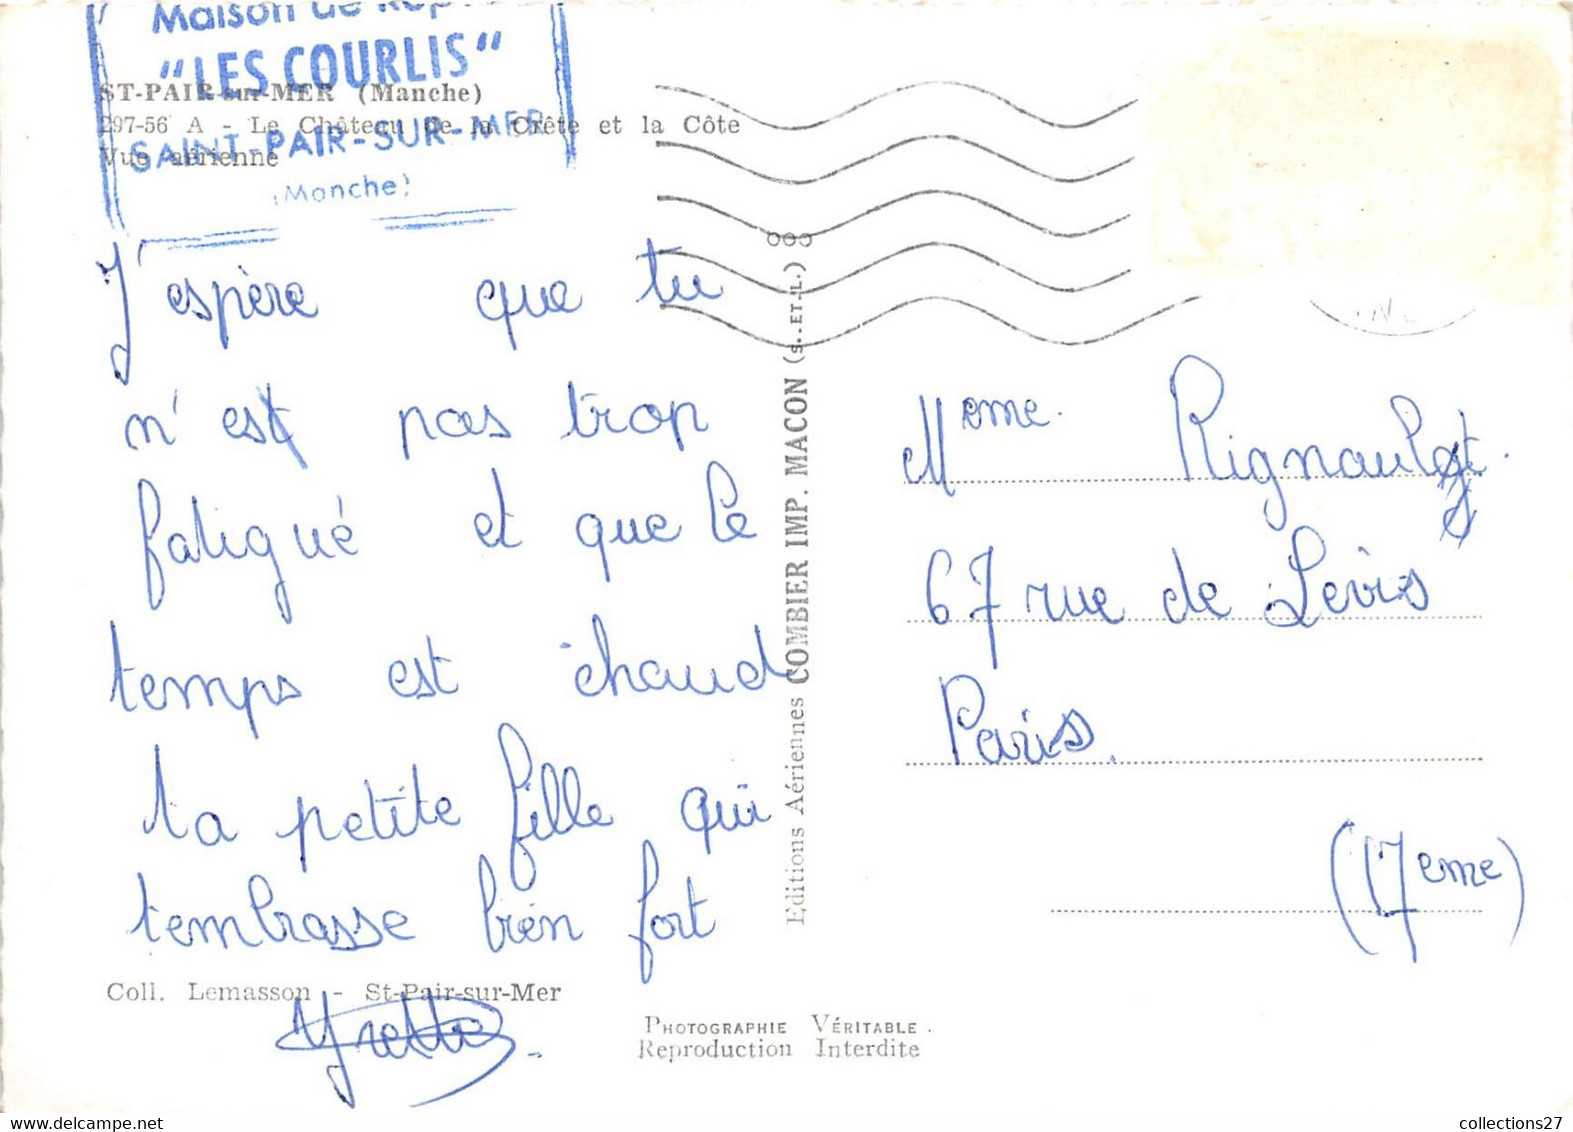 Maison de Rep
"LES COURLIS"
SAINT-PAIR-SUR-MER
(Manche)
ST-PAIR-sur-MER (Manche)
297-56 A - Le Château de la Crête et la Côte
Vue aérienne
J'espère que tu
n'est pas trop
fatigué et que le
temps est chaud
ta petite fille qui
t'embrasse bien fort
Yvette
Coll. Lemasson - St-Pair-sur-Mer
Editions Aériennes COMBIER IMP. MACON (S.-ET-L.) ooo
Mme. Rignault
67 rue de Levis
Paris.
(17eme)
PHOTOGRAPHIE VÉRITABLE.
Reproduction Interdite
collections27